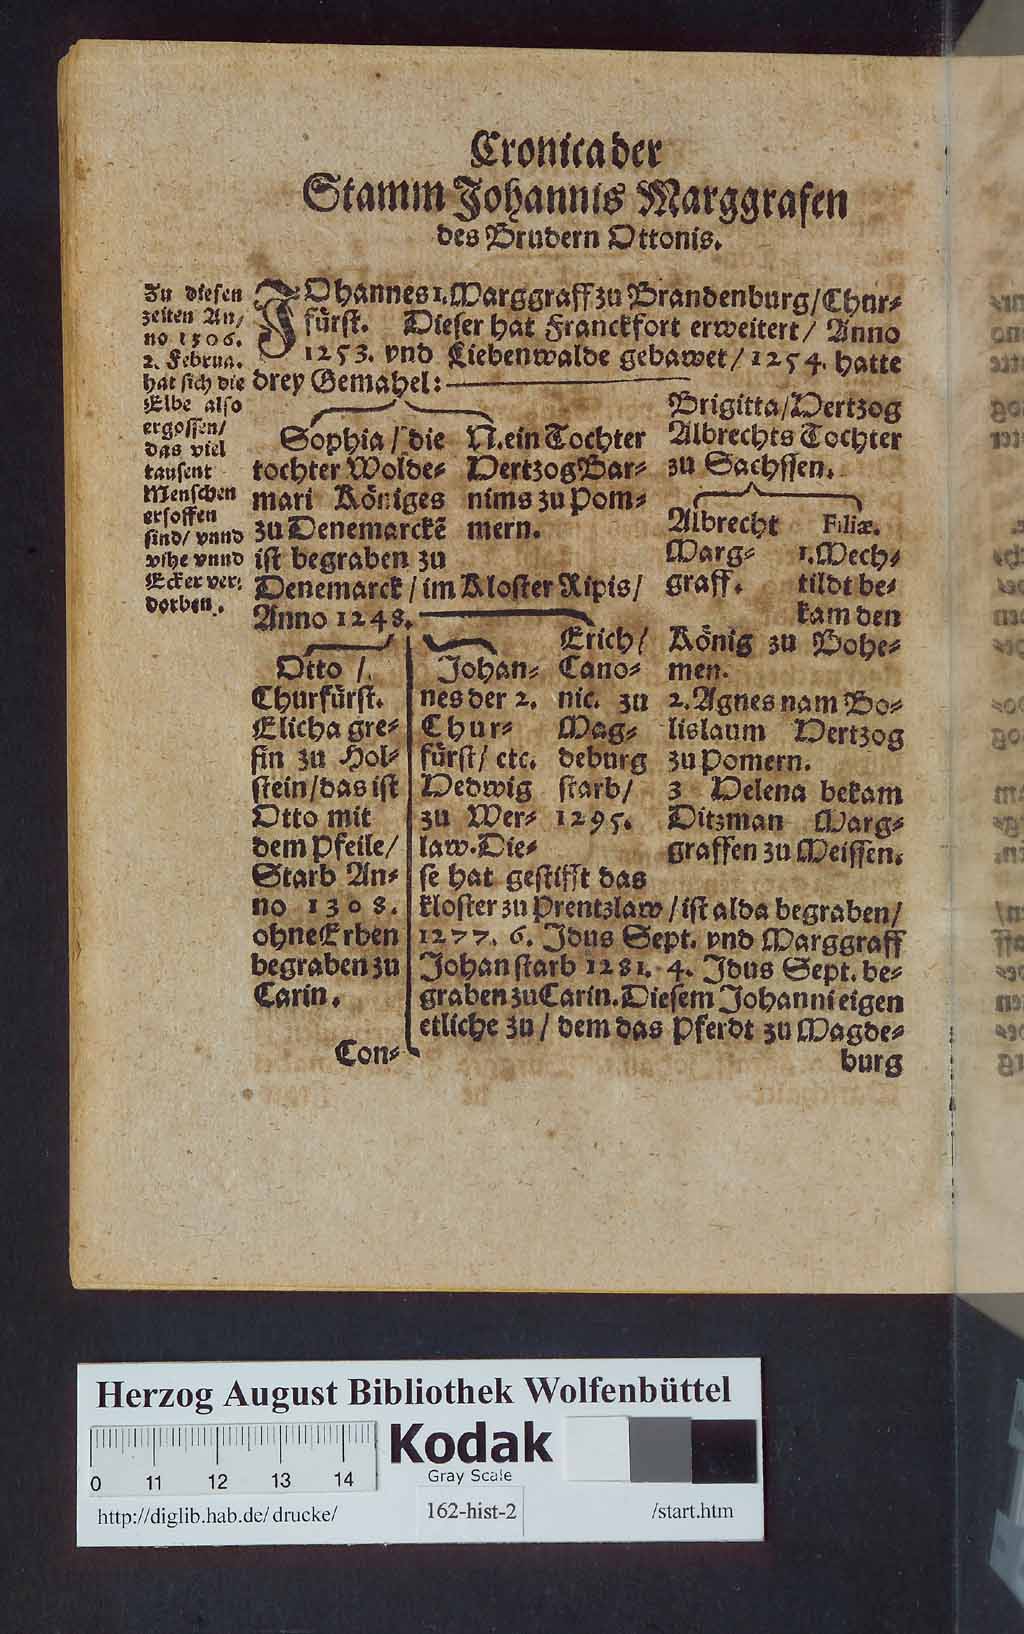 Cronica der
Stamm Johannis Marggrafen
des Brudern Ottonis.
Zu diesen
zeiten An/
no 1306.
2. Februa.
hat sich die
Elbe also
ergossen/
das viel
tausent
Menschen
ersoffen
sind/ vnnd
vihe vnnd
Ecker ver/
dorben.
JOhannes 1. Marggraff zu Brandenburg/ Chur-
fürst. Dieser hat Franckfort erweitert/ Anno
1253. vnd Liebenwalde gebawet/ 1254. hatte
drey Gemahel:
Sophia/ die
tochter Wolde-
mari Königes
zu Denemarckē
ist begraben zu
Denemarck/ im Kloster Ripis/
Anno 1248.
N. ein Tochter
Hertzog Bar-
nims zu Pom-
mern.
Brigitta/ Hertzog
Albrechts Tochter
zu Sachssen.
Albrecht
Marg-
graff.
Filiæ.
1. Mech-
tildt be-
kam den
König zu Bohe-
men.
2. Agnes nam Bo-
lislaum Hertzog
zu Pomern.
3 Helena bekam
Ditzman Marg-
graffen zu Meissen.
Otto /.
Churfürst.
Elicha gre-
fin zu Hol-
stein/ das ist
Otto mit
dem Pfeile/
Starb An-
no 1308.
ohne Erben
begraben zu
Carin.
Johan-
nes der 2.
Chur-
fürst/ etc.
Hedwig
zu Wer-
law. Die-
Erich/
Cano-
nic. zu
Mag-
deburg
starb/
1295.
se hat gestifft das
kloster zu Prentzlaw/ ist alda begraben/
1277. 6. Idus Sept. vnd Marggraff
Johan starb 1281. 4. Idus Sept. be-
graben zu Carin. Diesem Johanni eigen
etliche zu/ dem das Pferdt zu Magde-
Con-
burg
Herzog August Bibliothek Wolfenbüttel
0 11 12 13 14
Kodak
Gray Scale
http://diglib.hab.de/drucke/
162-hist-2
/start.htm